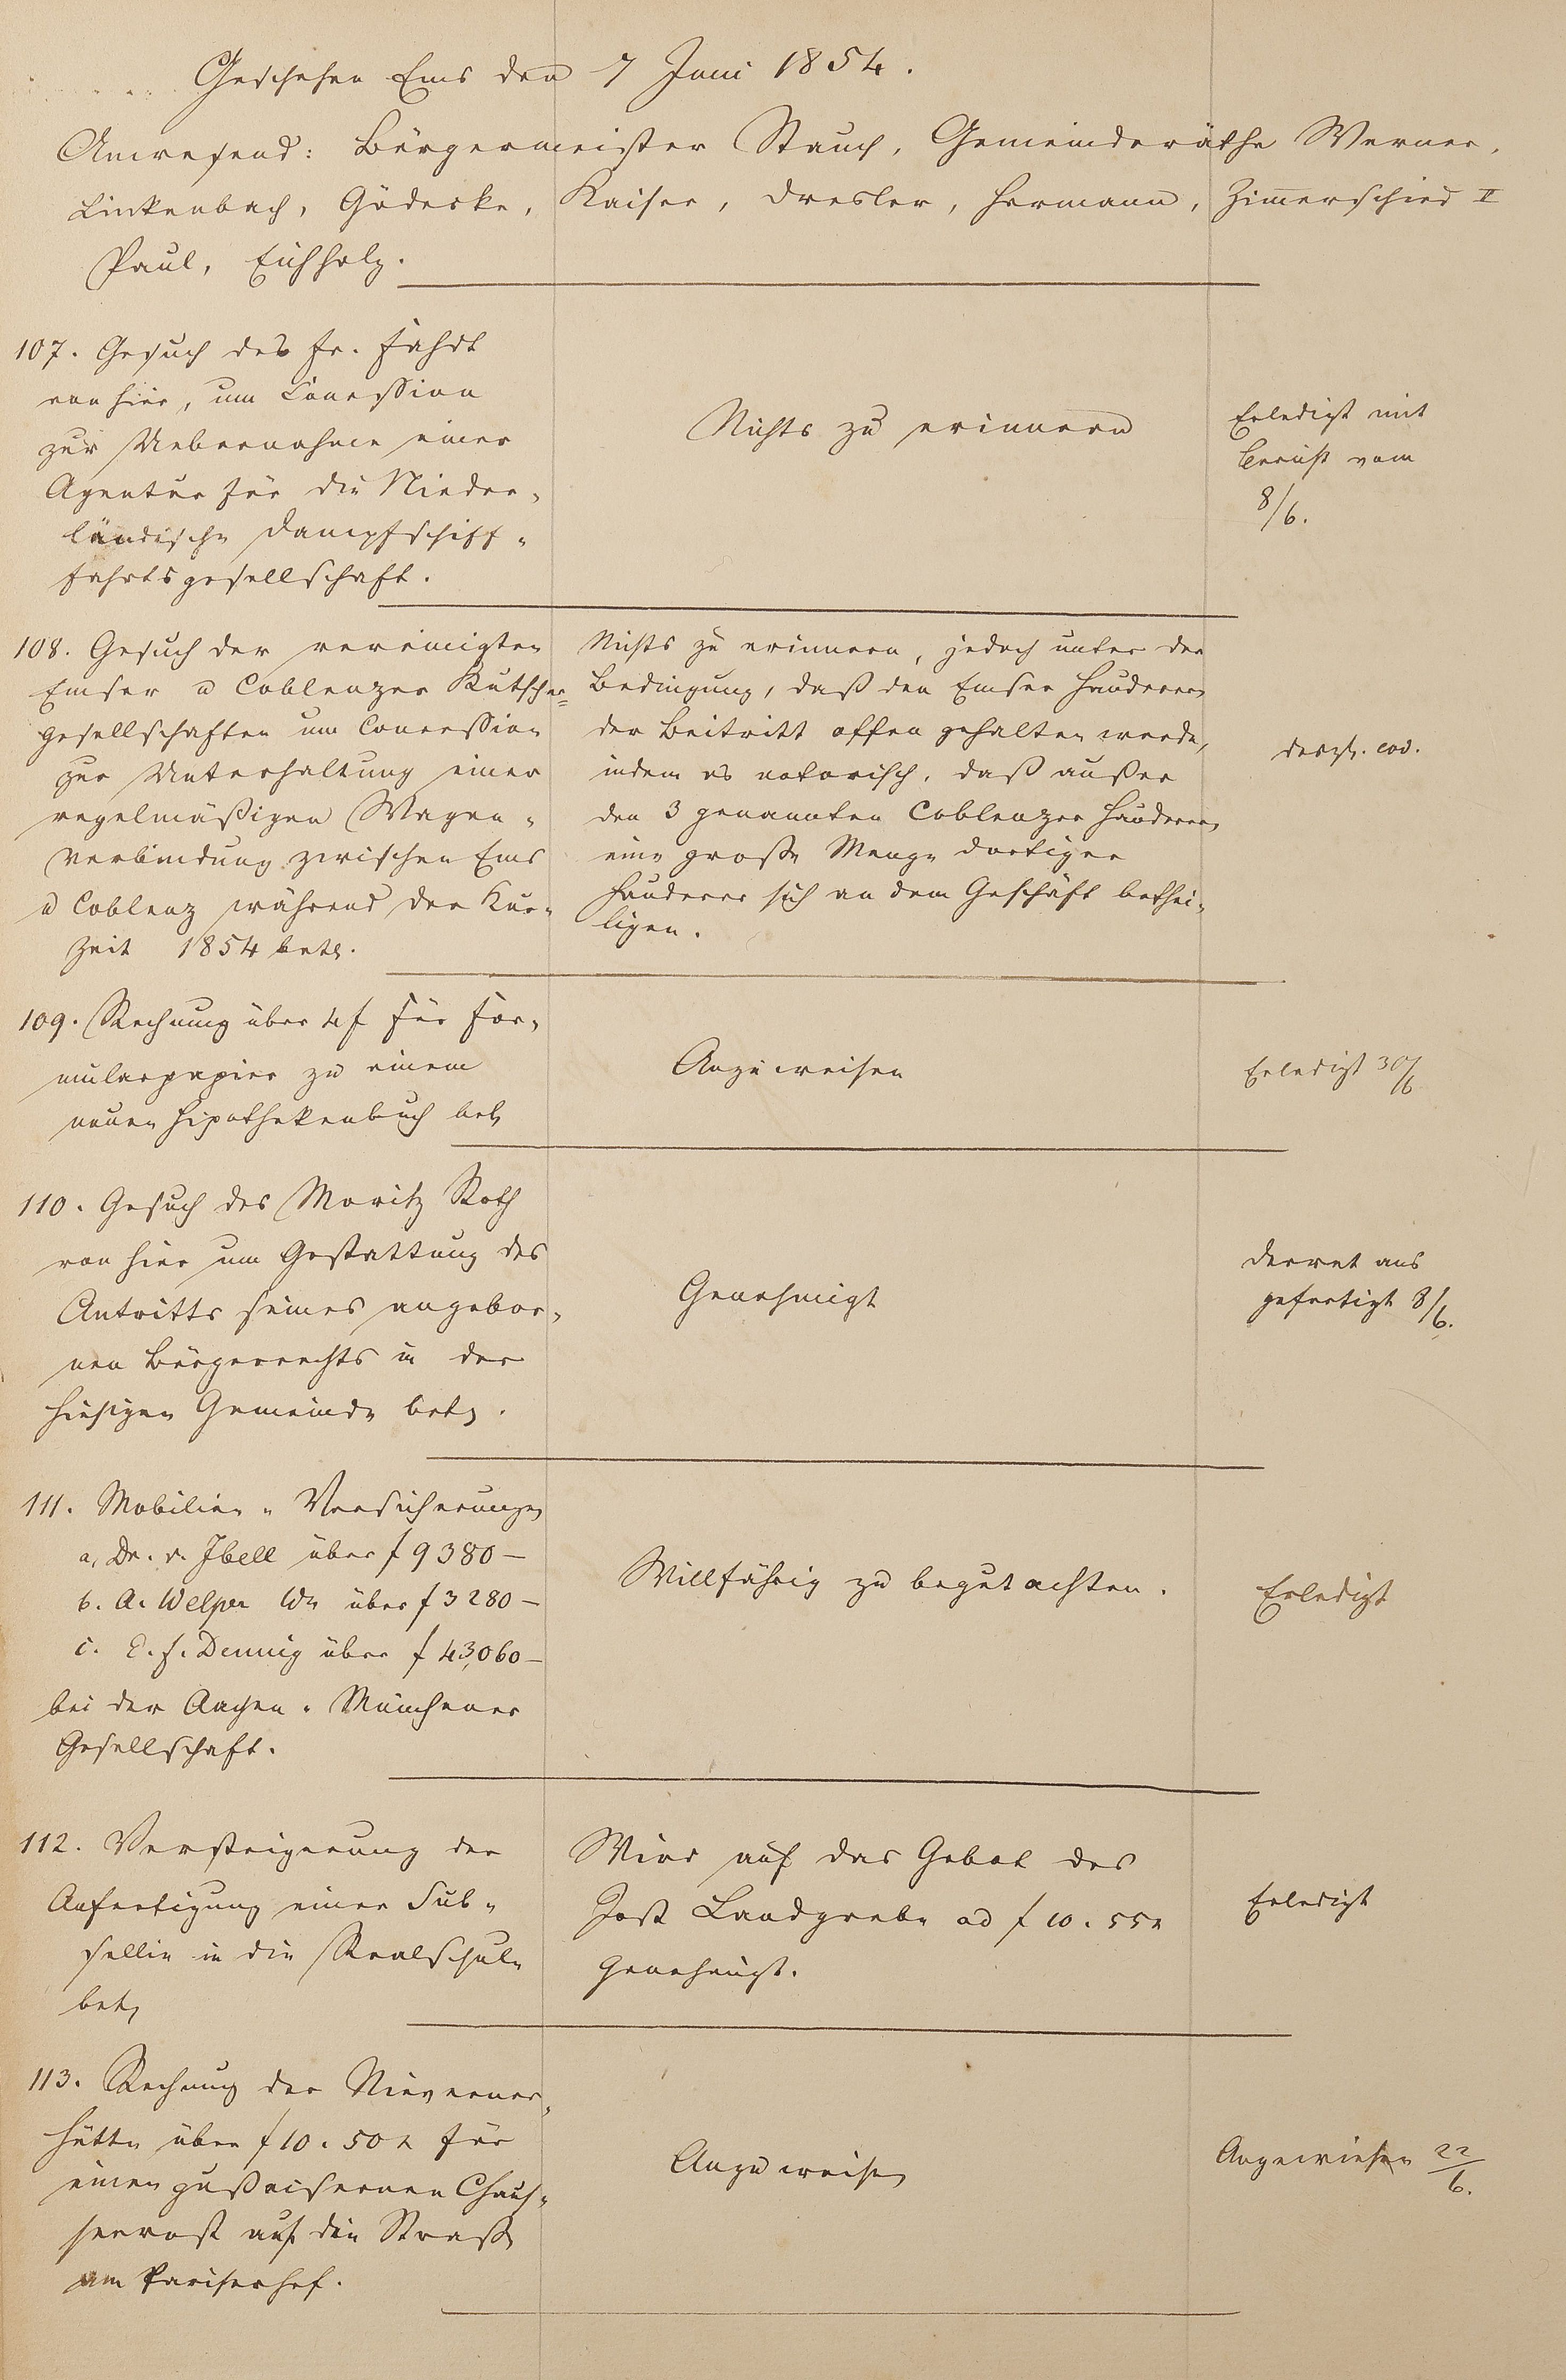 Geschehen Ems den 7 Juni 1854.
Anwesend: Bürgermeister Stauch, Gemeinderäthe Werner,
Linkenbach, Gödecke, Kaiser, Dresler, Hermann, Zimerschied II
Paul, Eichholz.
107. Gesuch des Fr. Fahdt
von hier, um Concession
zur Uebernahme einer
Agentur für die Nieder-
ländische Dampfschiff-
fahrtsgesellschaft.
Nichts zu erinnern
Erledigt mit
Bericht vom
8/6.
108. Gesuch der vereinigten
Emser u Coblenzer Kutscher=
gesellschaften um Concession
zur Unterhaltung einer
regelmäßigen Wagen-
verbindung zwischen Ems
u Coblenz während der Kur-
zeit 1854 betr.
Nichts zu erinnern, jedoch unter der
Bedingung, daß den Emser Hauderern
der Beitritt offen gehalten werde,
indem es notorisch, daß außer
den 3 genannten Coblenzer Hauderern
eine große Menge dortiger
Hauderer sich an dem Geschäft bethei-
ligen.
desgl. eod.
109. Rechnung über 4 f für For-
mularpapier zu einem
neuen Hipothekenbuch betr
Anzuweisen
Erledigt 30/6
110. Gesuch des Moritz Roth
von hier um Gestattung des
Antritts seines angebor-
nen Bürgerrechts in der
hiesigen Gemeinde betr.
Genehmigt
Decret aus
gefertigt 8/6.
111. Mobilien-Versicherungen
a, Dr. v. Ibell über f 9380 —
b. A. Welper We über f 3280 —
c. E. f. Dennig über f 43,060 —
bei der Aachen-Münchener
Gesellschaft.
Willfährig zu begutachten.
Erledigt
112. Versteigerung der
Anfertigung einer Sub-
sellie in die Realschule
betr
Wird auf das Gebot des
Jost Landgrebe ad f 10. 55x
genehmigt.
Erledigt
113. Rechnung der Nieverner-
hütte über f 10. 50x für
einen gußeisernen Chaus-
seerost auf die Straße
am Pariserhof.
Anzuweisen
Angewiesen 22/6.